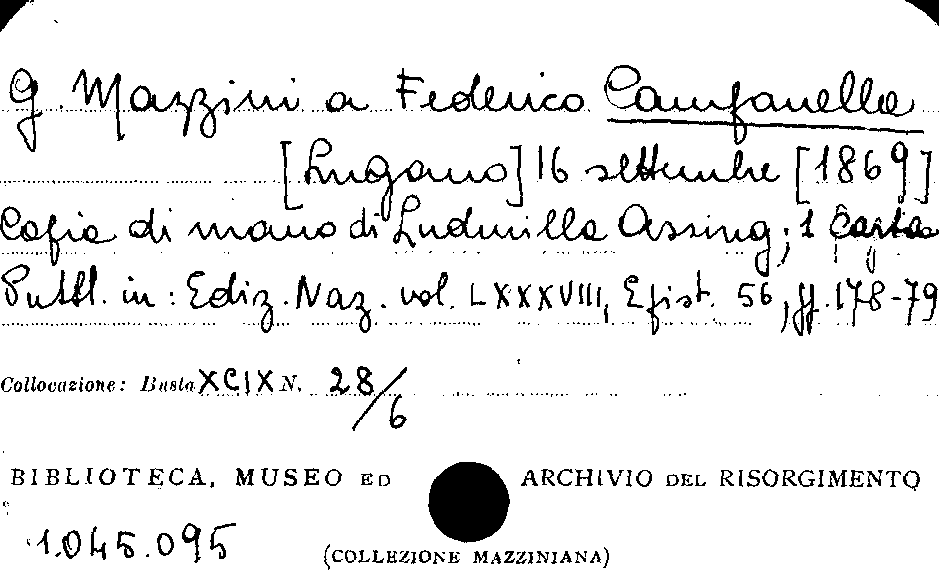 G. Mazzini a Federico Campanella
[Lugano] 16 settembre [1869]
Copia di mano di Ludmilla Assing; 1 carta
Pubbl. in: Ediz. Naz. vol. LXXXVIII, Epist. 56, pp. 178-79
Collocazione: Busta XCIX N. 28/6
BIBLIOTECA, MUSEO ED ARCHIVIO DEL RISORGIMENTO
1.045.095
(COLLEZIONE MAZZINIANA)